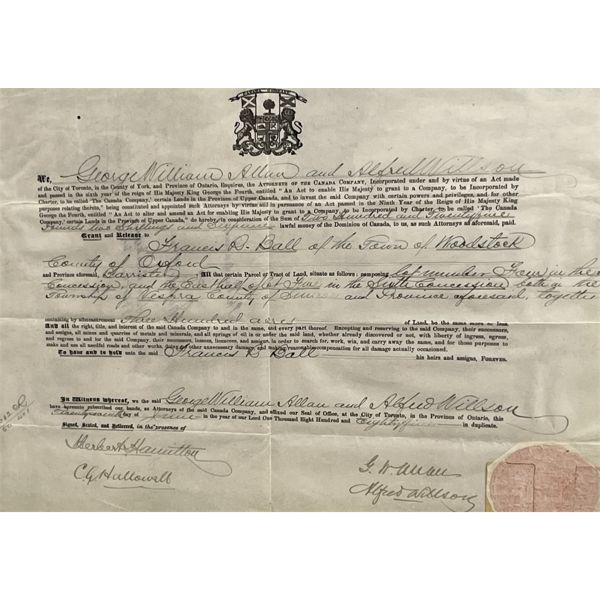 CANADA COMPANY
We, George William Allan and Alfred Willson
of the City of Toronto, in the County of York, and Province of Ontario, Esquires, the ATTORNEYS OF THE CANADA COMPANY, Incorporated under and by virtue of an Act made
and passed in the sixth year of the reign of His Majesty King George the Fourth, entitled "An Act to enable His Majesty to grant to a Company, to be Incorporated by
Charter, to be called 'The Canada Company,' certain Lands in the Province of Upper Canada, and to invest the said Company with certain powers and privileges, and for other
purposes relating thereto," being constituted and appointed such Attorneys by virtue and in pursuance of an Act passed in the Ninth Year of the Reign of His Majesty King
George the Fourth, entitled "An Act to alter and amend an Act for enabling His Majesty to grant to a Company, to be Incorporated by Charter, to be called 'The Canada
Company,' certain Lands in the Province of Upper Canada," do hereby, in consideration of the Sum of Two Hundred and Twentyfive
Pounds two Shillings and Sixpence lawful money of the Dominion of Canada, to us, as such Attorneys as aforesaid, paid.
Grant and Release to Francis R. Ball of the Town of Woodstock
County of Oxford
and Province aforesaid, Barrister All that certain Parcel or Tract of Land, situate as follows: composing Lot number Four in the
Concession, and the East half of Lot Five in the Sixth Concession both in the
Township of Vespra County of Simcoe and Province aforesaid, together
containing by admeasurement Three Hundred acres of Land, be the same more or less,
And all the right, title, and interest of the said Canada Company to and in the same, and every part thereof. Excepting and reserving to the said Company, their successors,
and assigns, all mines and quarries of metals and minerals, and all springs of oil in or under the said land, whether already discovered or not, with liberty of ingress, egress,
and regress to and for the said Company, their successors, lessees, licencees, and assigns, in order to search for, work, win, and carry away the same, and for those purposes to
make and use all needful roads and other works, doing no unnecessary damage, and making reasonable compensation for all damage actually occasioned.
To have and to hold unto the said Francis R Ball his heirs and assigns, FOREVER.
In Witness whereof, we the said George William Allan and Alfred Willson
have hereunto subscribed our hands, as Attorneys of the said Canada Company, and affixed our Seal of Office, at the City of Toronto, in the Province of Ontario, this
day of in the year of our Lord One Thousand Eight Hundred and Eighty in duplicate.
Signed, Sealed, and Delivered, in the presence of
Herbert Hamilton
C G Hallowell
G. W. Allan
Alfred Willson